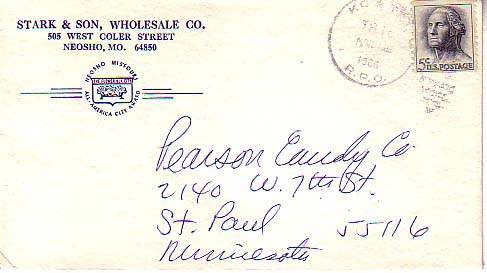 STARK & SON, WHOLESALE CO.
505 WEST COLER STREET
NEOSHO, MO. 64850
NEOSHO MISSOURI
ALL-AMERICA CITY AWARD
R.P.O.
5¢ U.S. POSTAGE
Pearson Candy Co.
2140 W. 7th St.
St. Paul 55116
Minnesota